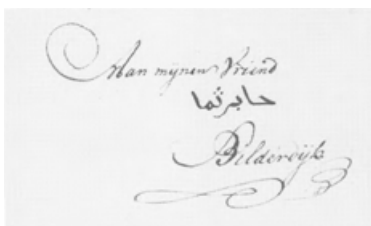 Aan mynen Vriend
حابرثما
Bilderdÿk